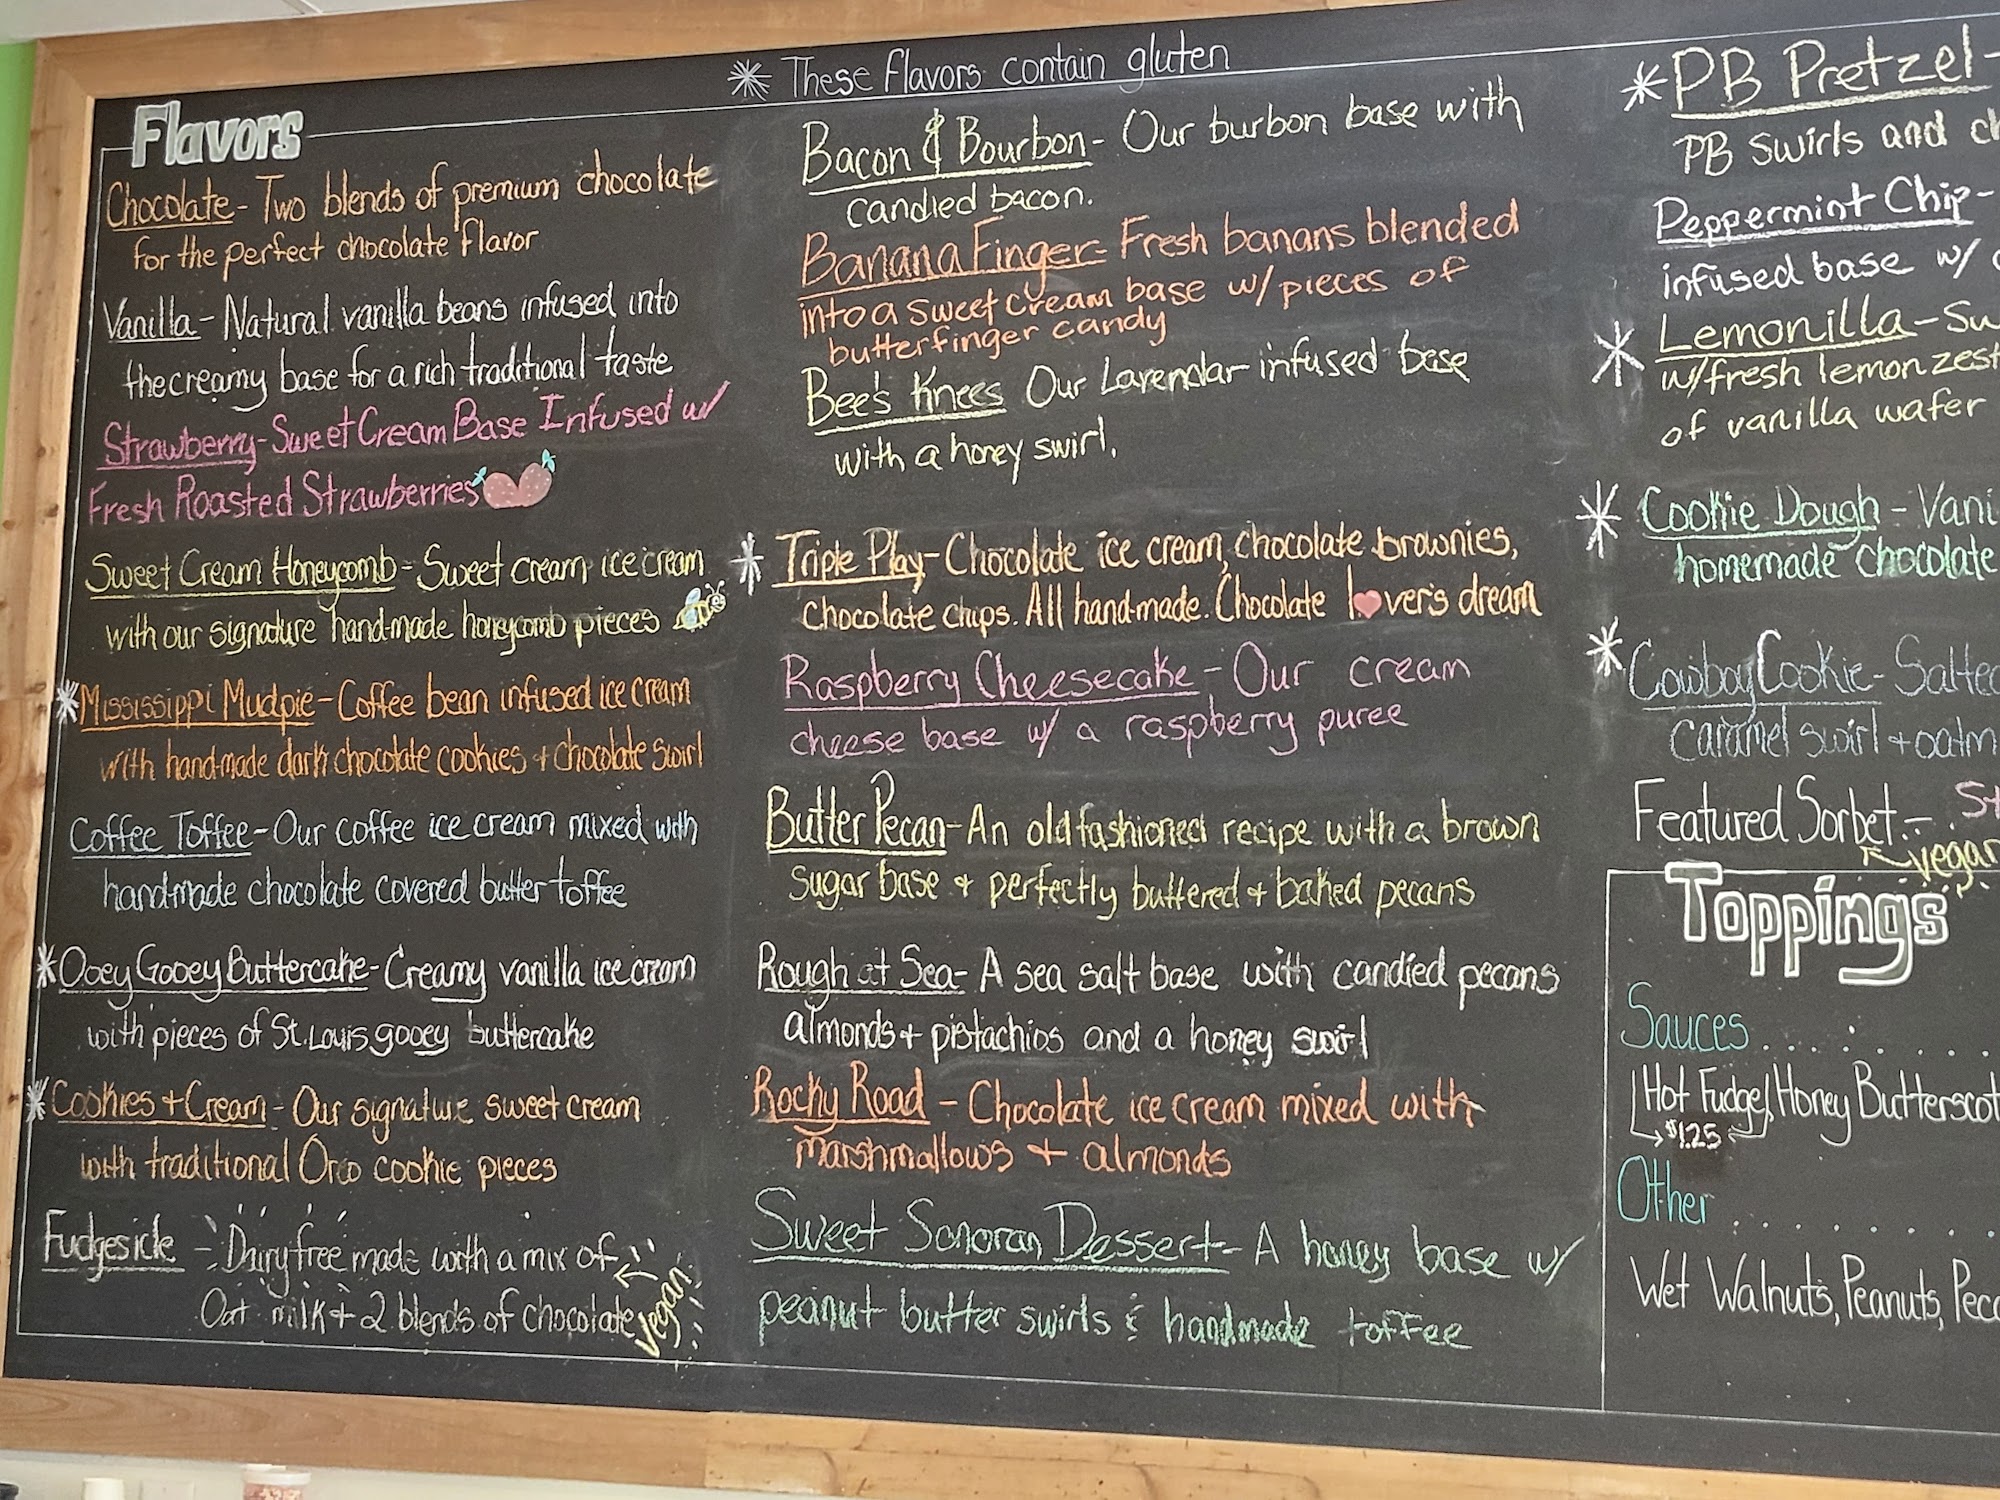 * These Flavors contain gluten
Flavors
Chocolate - Two blends of premium chocolate
for the perfect chocolate flavor
Vanilla - Natural vanilla beans infused into
the creamy base for a rich traditional taste
Strawberry - Sweet Cream Base Infused w/
Fresh Roasted Strawberries
Sweet Cream Honeycomb - Sweet cream ice cream
with our signature hand-made honeycomb pieces
* Mississippi Mudpie - Coffee bean infused ice cream
with handmade dark chocolate cookies + chocolate swirl
Coffee Toffee - Our coffee ice cream mixed with
handmade chocolate covered butter toffee
* Ooey Gooey Buttercake - Creamy vanilla ice cream
with pieces of St. Louis gooey buttercake
* Cookies + Cream - Our signature sweet cream
with traditional Oreo cookie pieces
Fudgesicle - Dairy free made with a mix of
Oat milk + 2 blends of chocolate
vegan
Bacon & Bourbon - Our burbon base with
candied bacon.
Banana Finger - Fresh banans blended
into a sweet cream base w/ pieces of
butterfinger candy
Bee's Knees Our Lavendar infused base
with a honey swirl.
* Triple Play - Chocolate ice cream, chocolate brownies,
chocolate chips. All hand-made. Chocolate lover's dream
Raspberry Cheesecake - Our cream
cheese base w/ a raspberry puree
Butter Pecan - An old fashioned recipe with a brown
sugar base + perfectly buttered + baked pecans
Rough at Sea - A sea salt base with candied pecans
almonds + pistachios and a honey swirl
Rocky Road - Chocolate ice cream mixed with
marshmallows + almonds
Sweet Sonoran Dessert - A honey base w/
peanut butter swirls & handmade toffee
* PB Pretzel -
PB swirls and
Peppermint Chip -
infused base w/
* Lemonilla -
w/ fresh lemon zest
of vanilla wafer
* Cookie Dough -
homemade chocolate
* Cowboy Cookie - Salted
caramel swirl +
Featured Sorbet -
vegan
Toppings
Sauces . . . . . . .
Hot Fudge, Honey
$1.25
Other . . . . . . . .
Wet Walnuts, Peanuts,